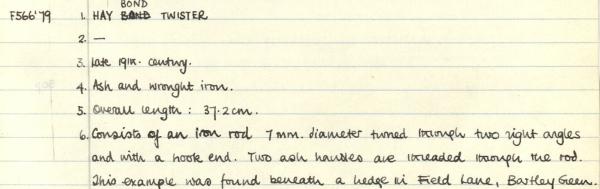 BOND
F566'79 1. HAY BAND TWISTER
2. —
3. Late 19th. century.
4. Ash and wrought iron.
5. Overall length : 37.2cm.
6. Consists of an iron rod 7mm. diameter turned through two right angles
and with a hook end. Two ash handles are threaded through the rod.
This example was found beneath a hedge in Field Lane, Bartley Green.